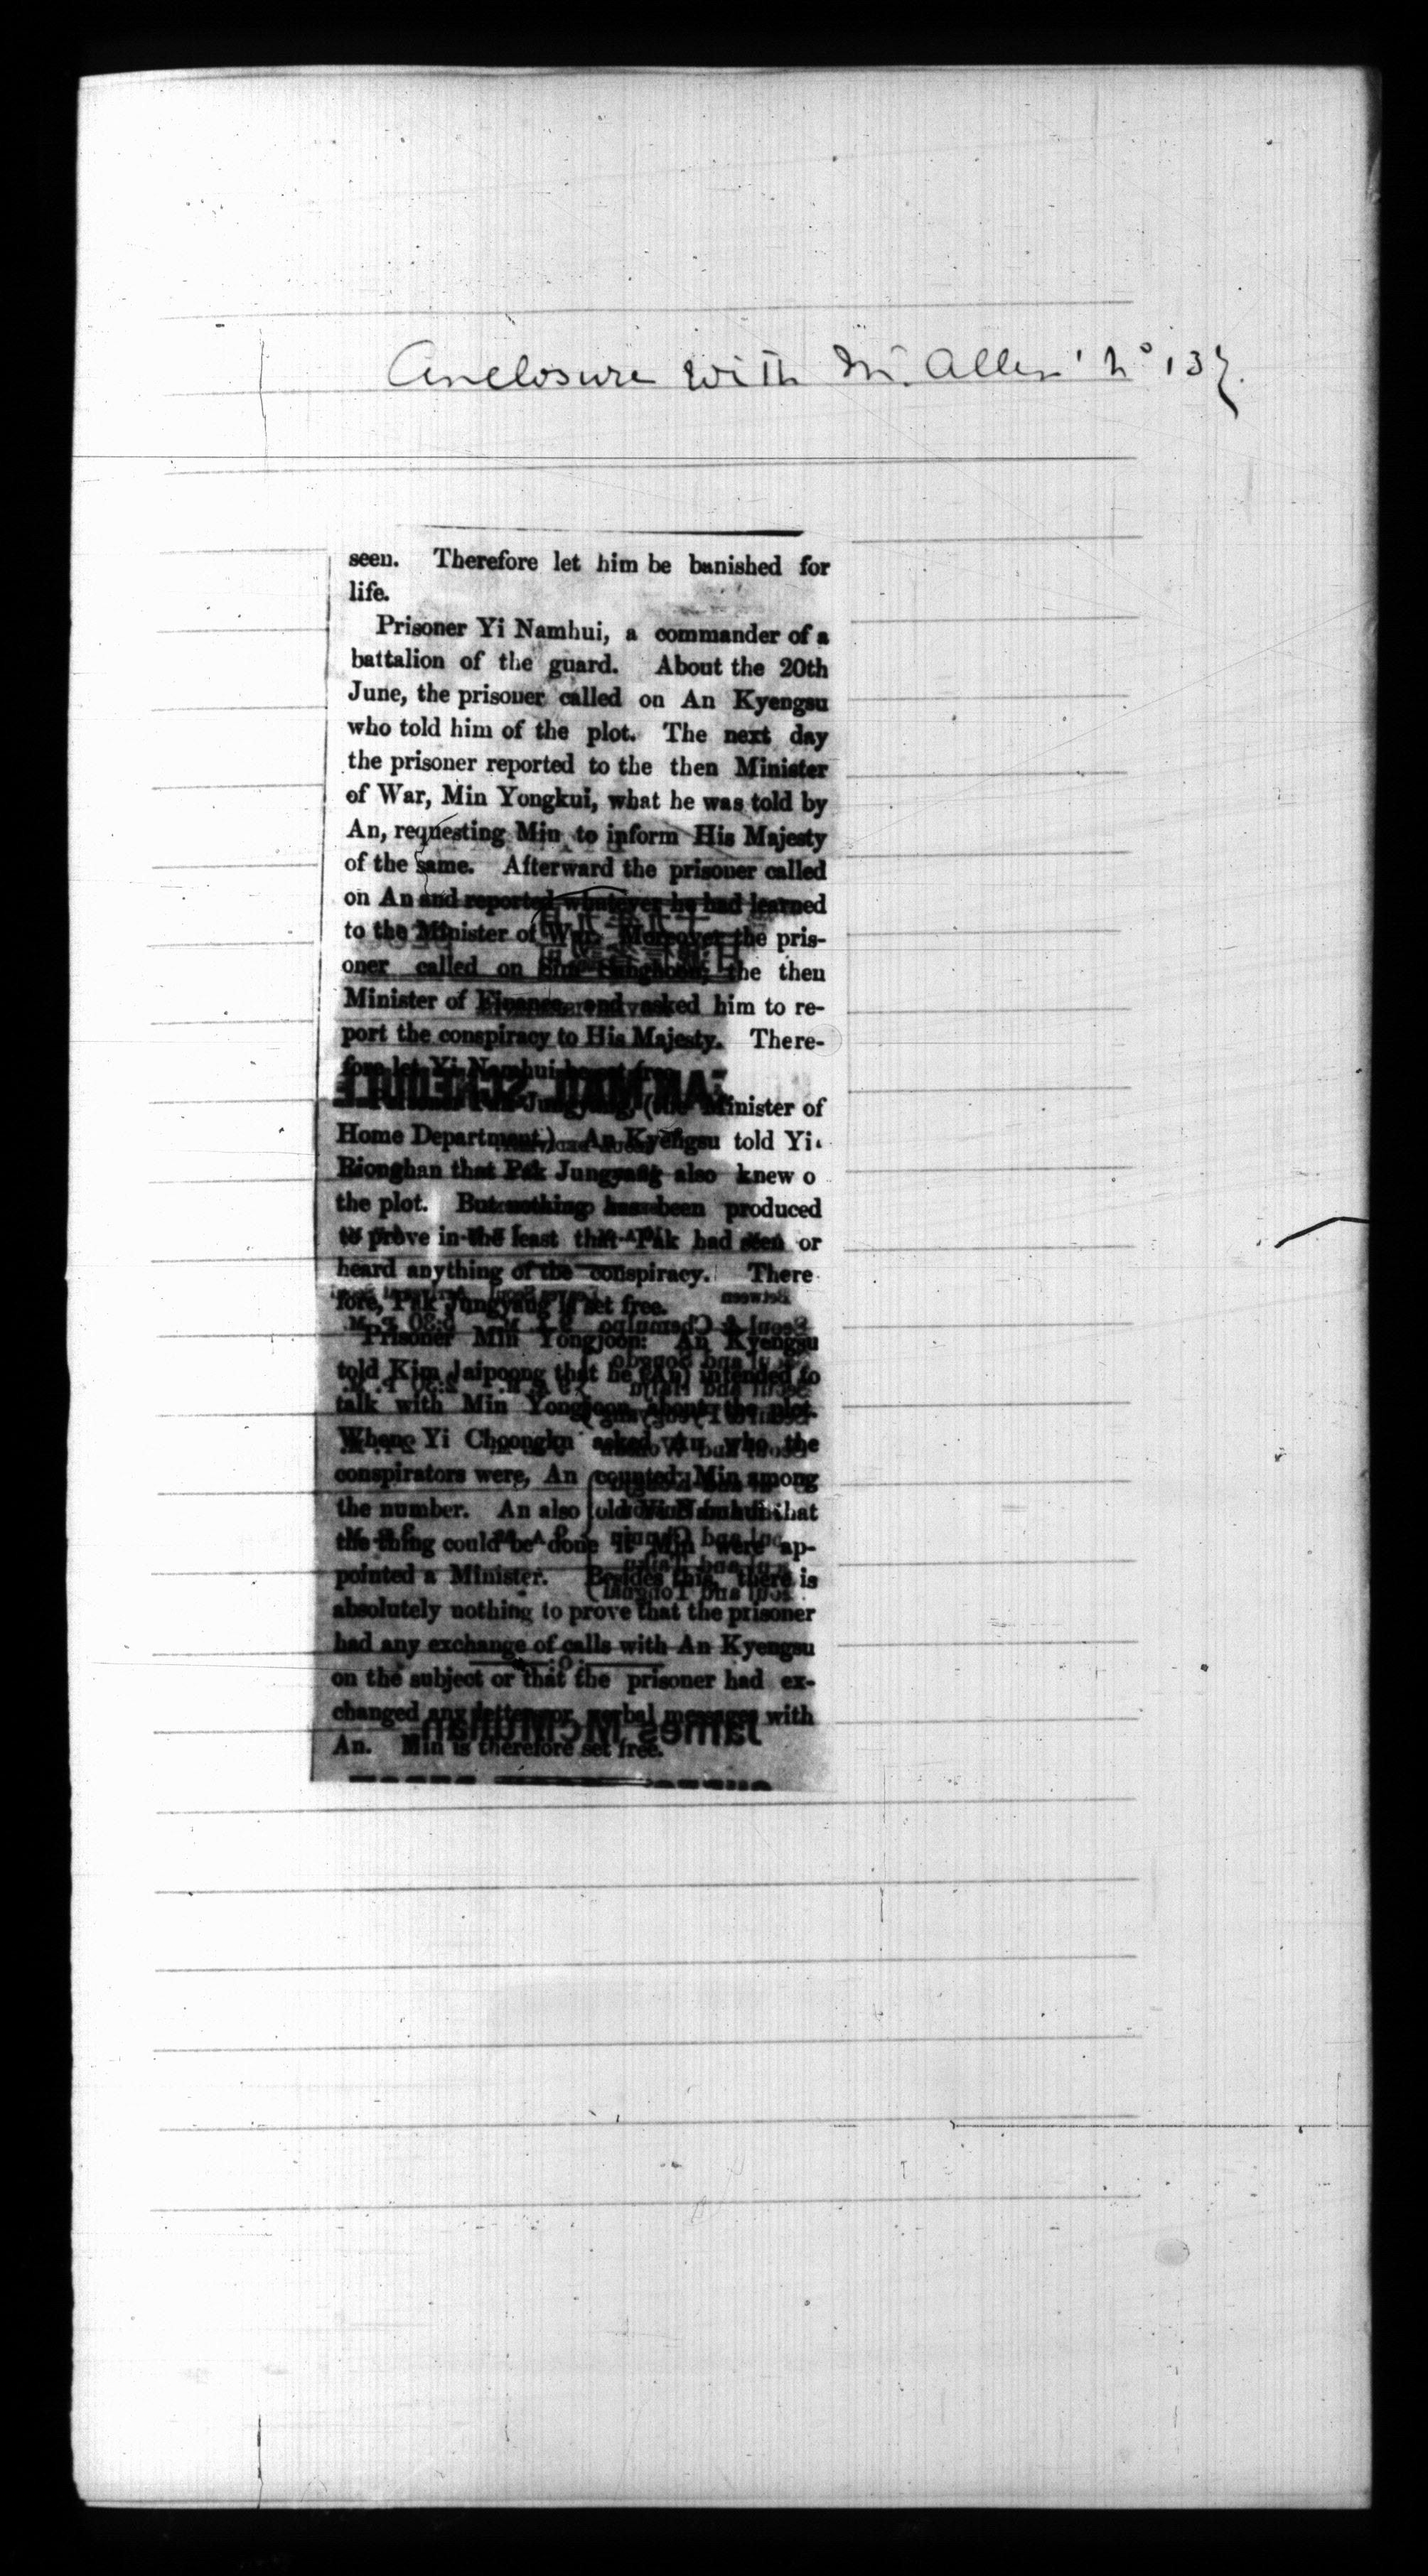 Enclosure with Mr. Allen' No 137.
seen. Therefore let him be banished for
life.
Prisoner Yi Namhui, a commander of a
battalion of the guard. About the 20th
June, the prisoner called on An Kyengsu
who told him of the plot. The next day
the prisoner reported to the then Minister
of War, Min Yongkui, what he was told by
An, requesting Min to inform His Majesty
of the same. Afterward the prisoner called
on An and reported whatever he had learned
to the Minister of War. Moreover the pris-
oner called on the then
Minister of Finance and asked him to re-
port the conspiracy to His Majesty. There-
fore let Yi Namhui be set free.
Jungyang, (the Minister of
Home Department.) An Kyengsu told Yi
Rionghan that Pak Jungyang also knew o
the plot. But nothing has been produced
to prove in the least that Pak had seen or
heard anything of the conspiracy. There
fore, Pak Jungyang is set free.
Prisoner Min Yongjoon: An Kyengsu
told Kim Jaipoong that he (An) intended to
talk with Min Yongjoon about the plot.
When Yi Choongku asked An who the
conspirators were, An counted Min among
the number. An also told Yi Namhui that
the thing could be done if Min were ap-
pointed a Minister. Besides this, there is
absolutely nothing to prove that the prisoner
had any exchange of calls with An Kyengsu
on the subject or that the prisoner had ex-
changed any letters or verbal messages with
An. Min is therefore set free.
James McMullan